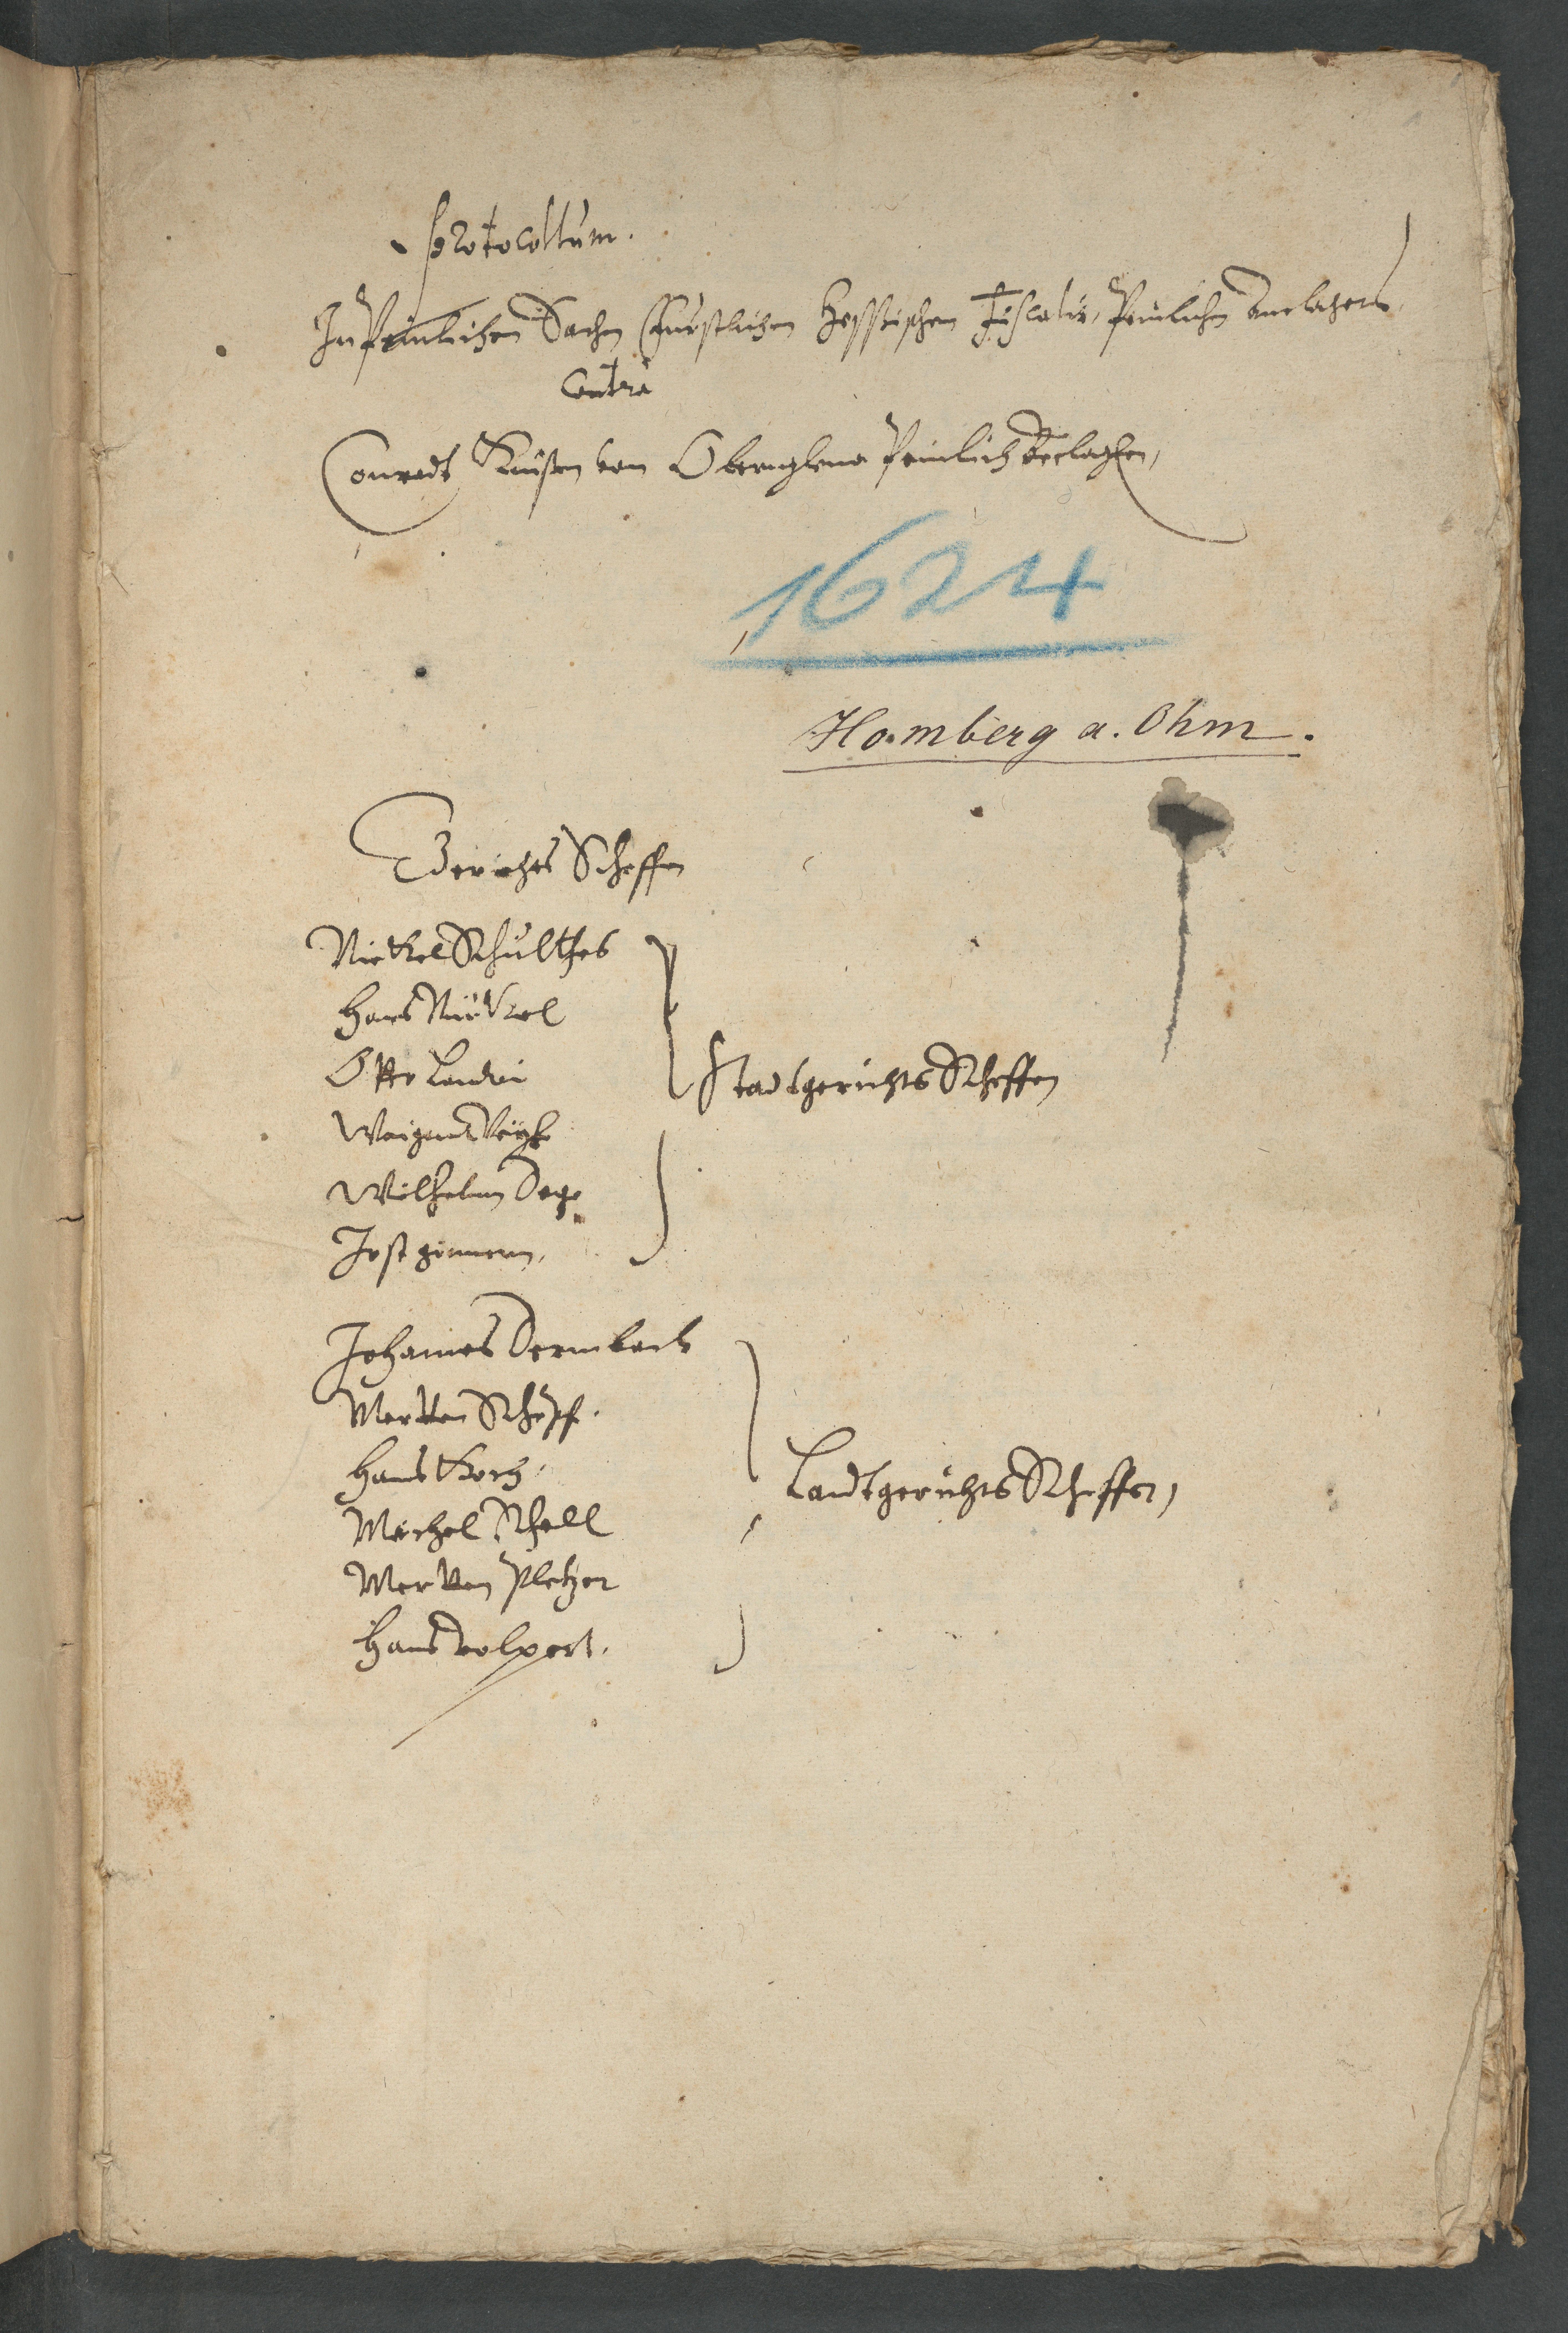 Protocollum.
In Peinlichen Sachen Fürstlichen Hessischen Fiscalis, Peinlichen Anclägers
Contra
Conradt von Obernglena Peinlich Beclagten,
1624
Homberg a. Ohm.
Gerichts Scheffen
Nickel Schulthes
Hans Nickel
Otto
Weigandt
Wilhelm
Jost
Stadtgerichts Scheffen
Johannes Dermbach
Merten
Hans Koch
Michel Schell
Merten Pletzer
Hans Volpert.
Landtgerichts Scheffen,